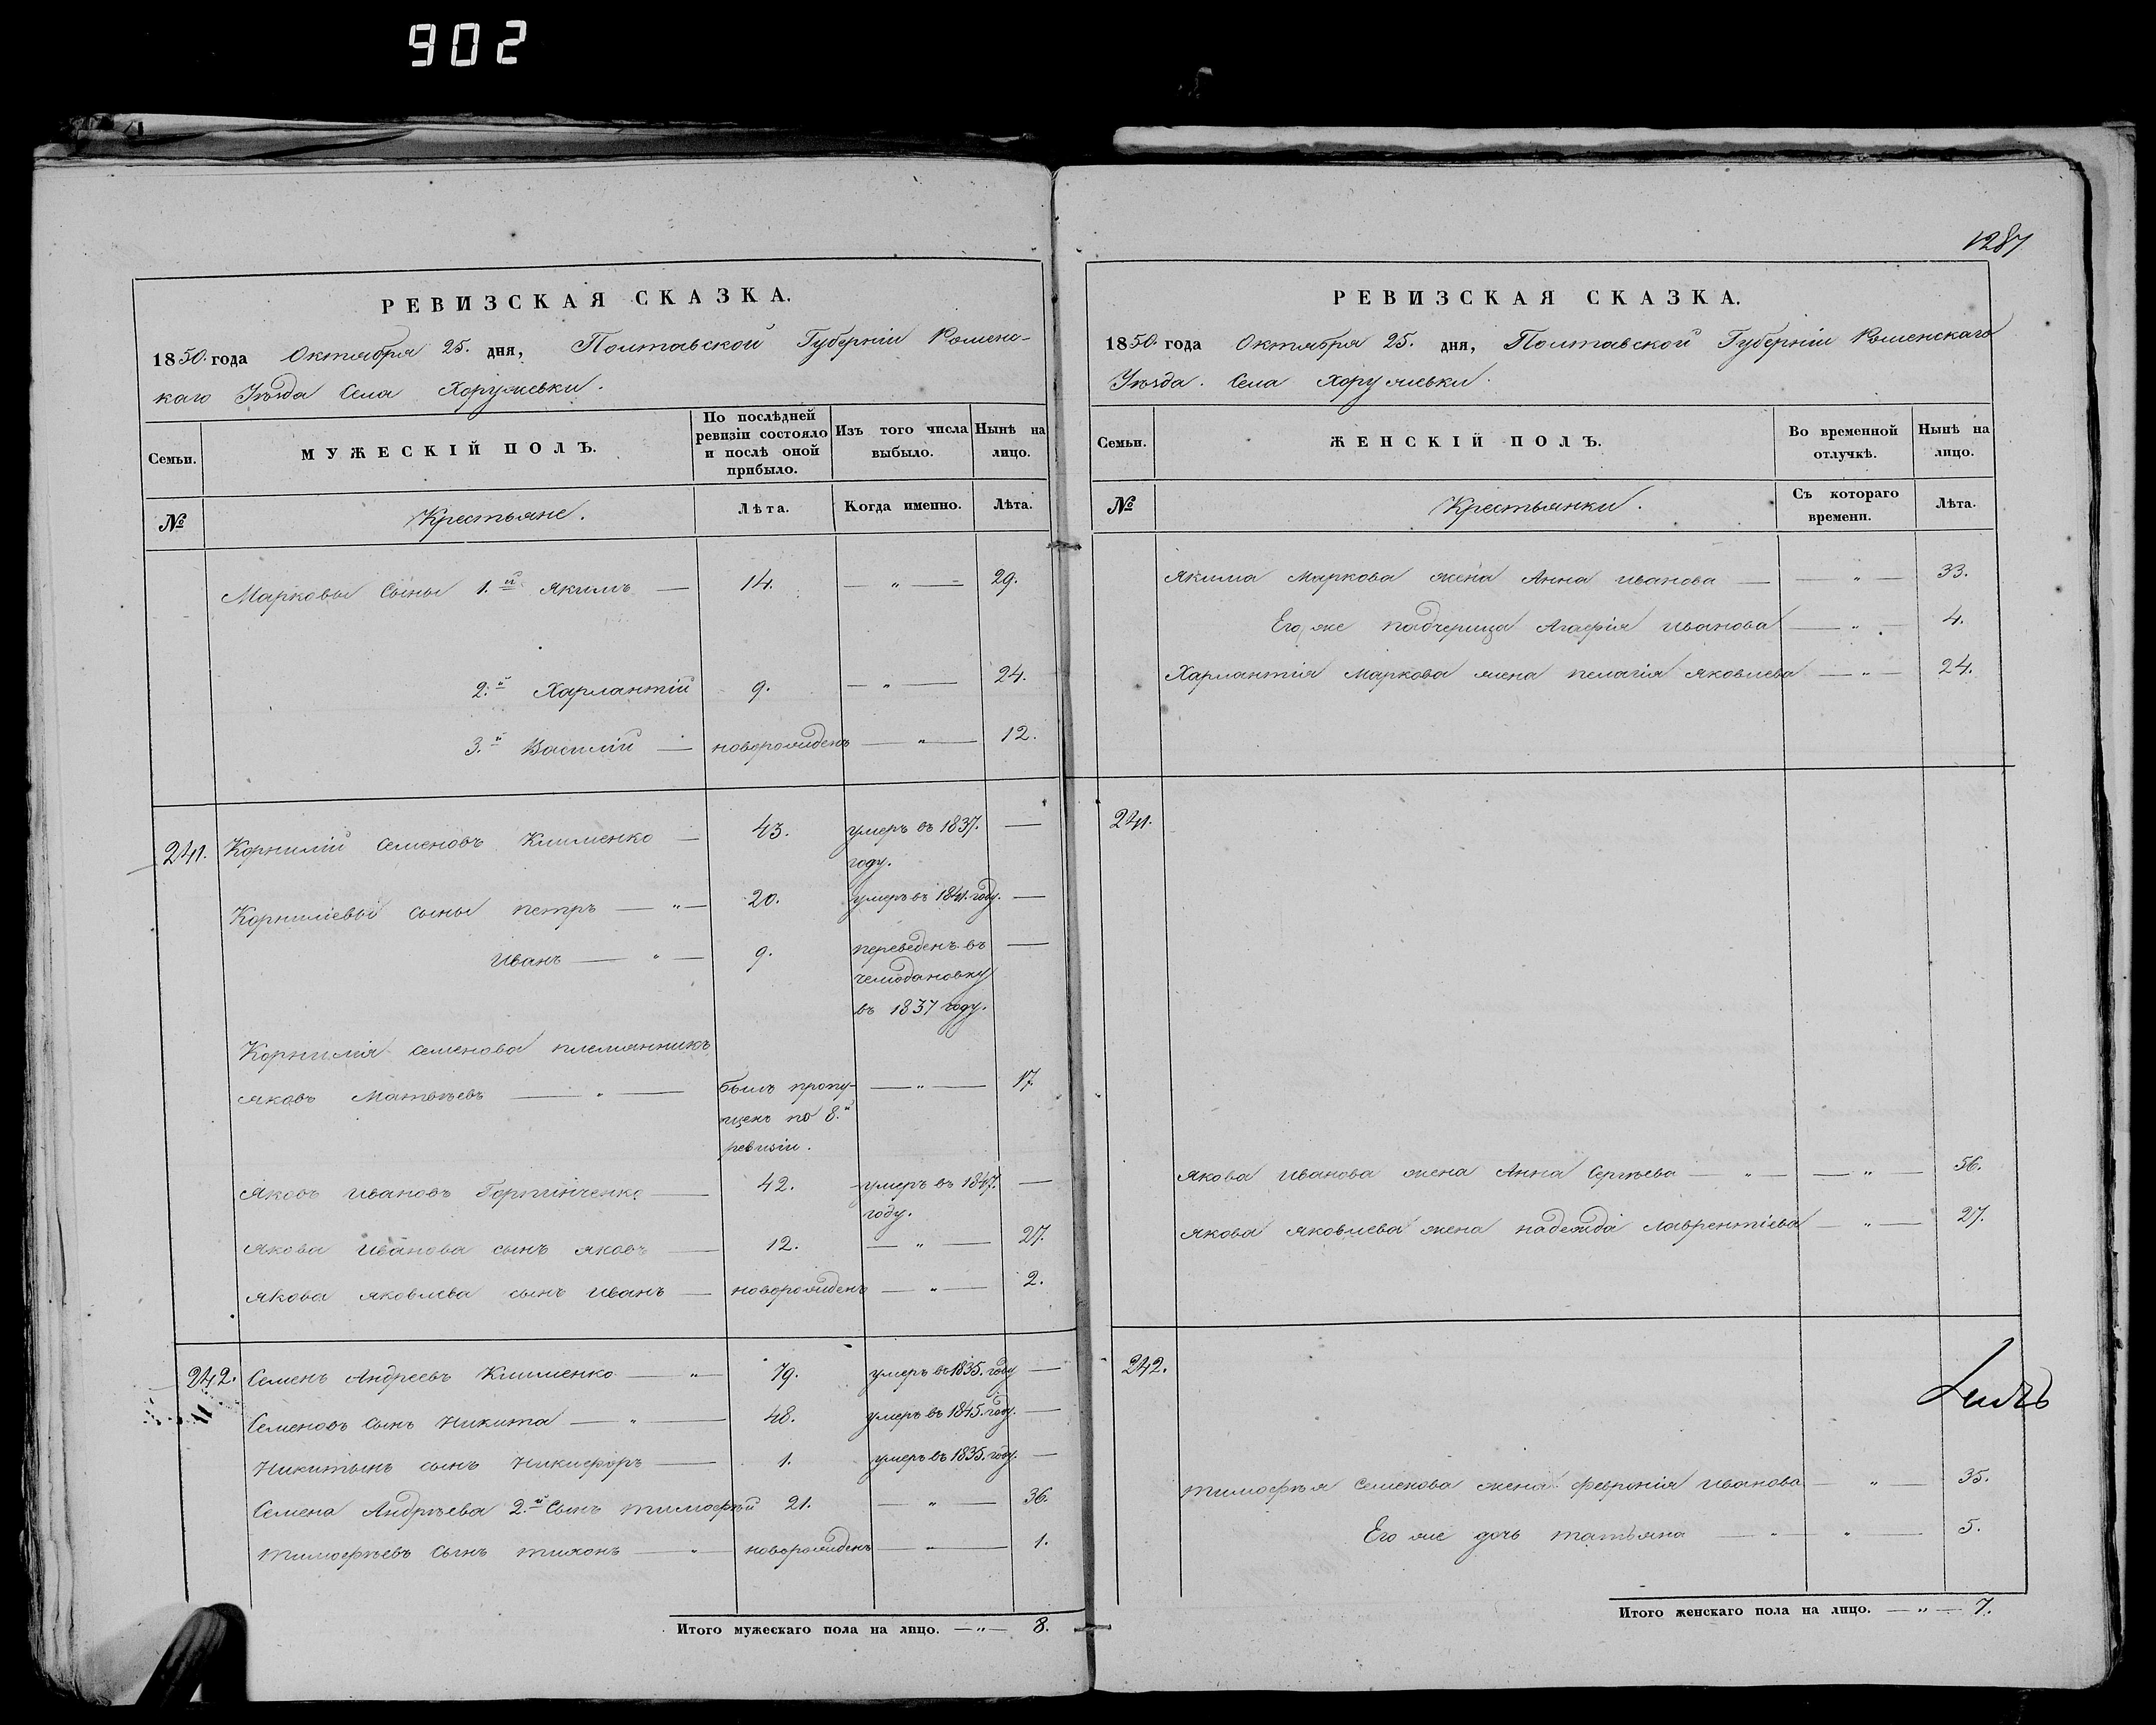 902
РЕВИЗСКАЯ СКАЗКА.
1850. года Октября 25. дня, Полтавской Губерніи Роменс-
каго Уѣзда Села Хоружевки.
Семьи. МУЖЕСКІЙ ПОЛЪ. По послѣдней ревизіи состояло и послѣ оной прибыло. Изъ того числа выбыло. Нынѣ на лицо.
№ Крестьяне. Лѣта. Когда именно. Лѣта.
Марковы Сыны 1.й Якимъ — 14. — „ — 29.
2.й Харлантій 9. — „ — 24.
3.й Василій — новорожденъ — „ — 12.
241. Корнилій Семеновъ Клименко — 43. умеръ въ 1837. —
году.
Корниліевы сыны петръ — „ — 20. умеръ въ 1841. году. —
Иванъ — „ — 9. переведенъ въ —
чемодановку
въ 1837 году.
Корнилія Семенова племянникъ
яковъ Матвѣевъ — „ — былъ пропу- — „ — 17.
щенъ по 8.й
ревизіи.
Яковъ Ивановъ Горпинченко — 42. умеръ въ 1847. —
году.
Якова Иванова сынъ яковъ — 12. — „ — 27.
Якова яковлева сынъ Иванъ — новорожденъ — „ — 2.
242. Семенъ Андреевъ Клименко — „ — 79. умеръ въ 1835. году —
Семеновъ Сынъ Никита — „ — 48. умеръ въ 1845. году. —
Никитынъ сынъ Никифоръ — 1. умеръ въ 1835. году. —
Семена Андрѣева 2.й Сынъ тимофѣй 21. — „ — 36.
тимофѣевъ Сынъ тихонъ — „ — новорожденъ — „ — 1.
Итого мужескаго пола на лицо. — „ — 8.
1287
РЕВИЗСКАЯ СКАЗКА.
1850. года Октября 25. дня, Полтавской Губерніи Роменскаго
Уѣзда. Села Хоружевки.
Семьи. ЖЕНСКІЙ ПОЛЪ. Во временной отлучкѣ. Нынѣ на лицо.
№ Крестьянки. Съ котораго времени. Лѣта.
Якима Маркова жена Анна Иванова — — „ — 33.
Его же падчерица Агафія Иванова — „ — 4.
Харлантія Маркова жена пелагія яковлева — „ — 24.
241.
Якова Иванова жена Анна Сергѣева — „ — — „ — 56.
якова яковлева жена надежда лаврентіева — „ — 27.
242.
тимофѣя Семенова жена февронія Иванова — „ — 35.
Его же дочь татьяна — „ — „ — 5.
Итого женскаго пола на лицо. — „ — 7.